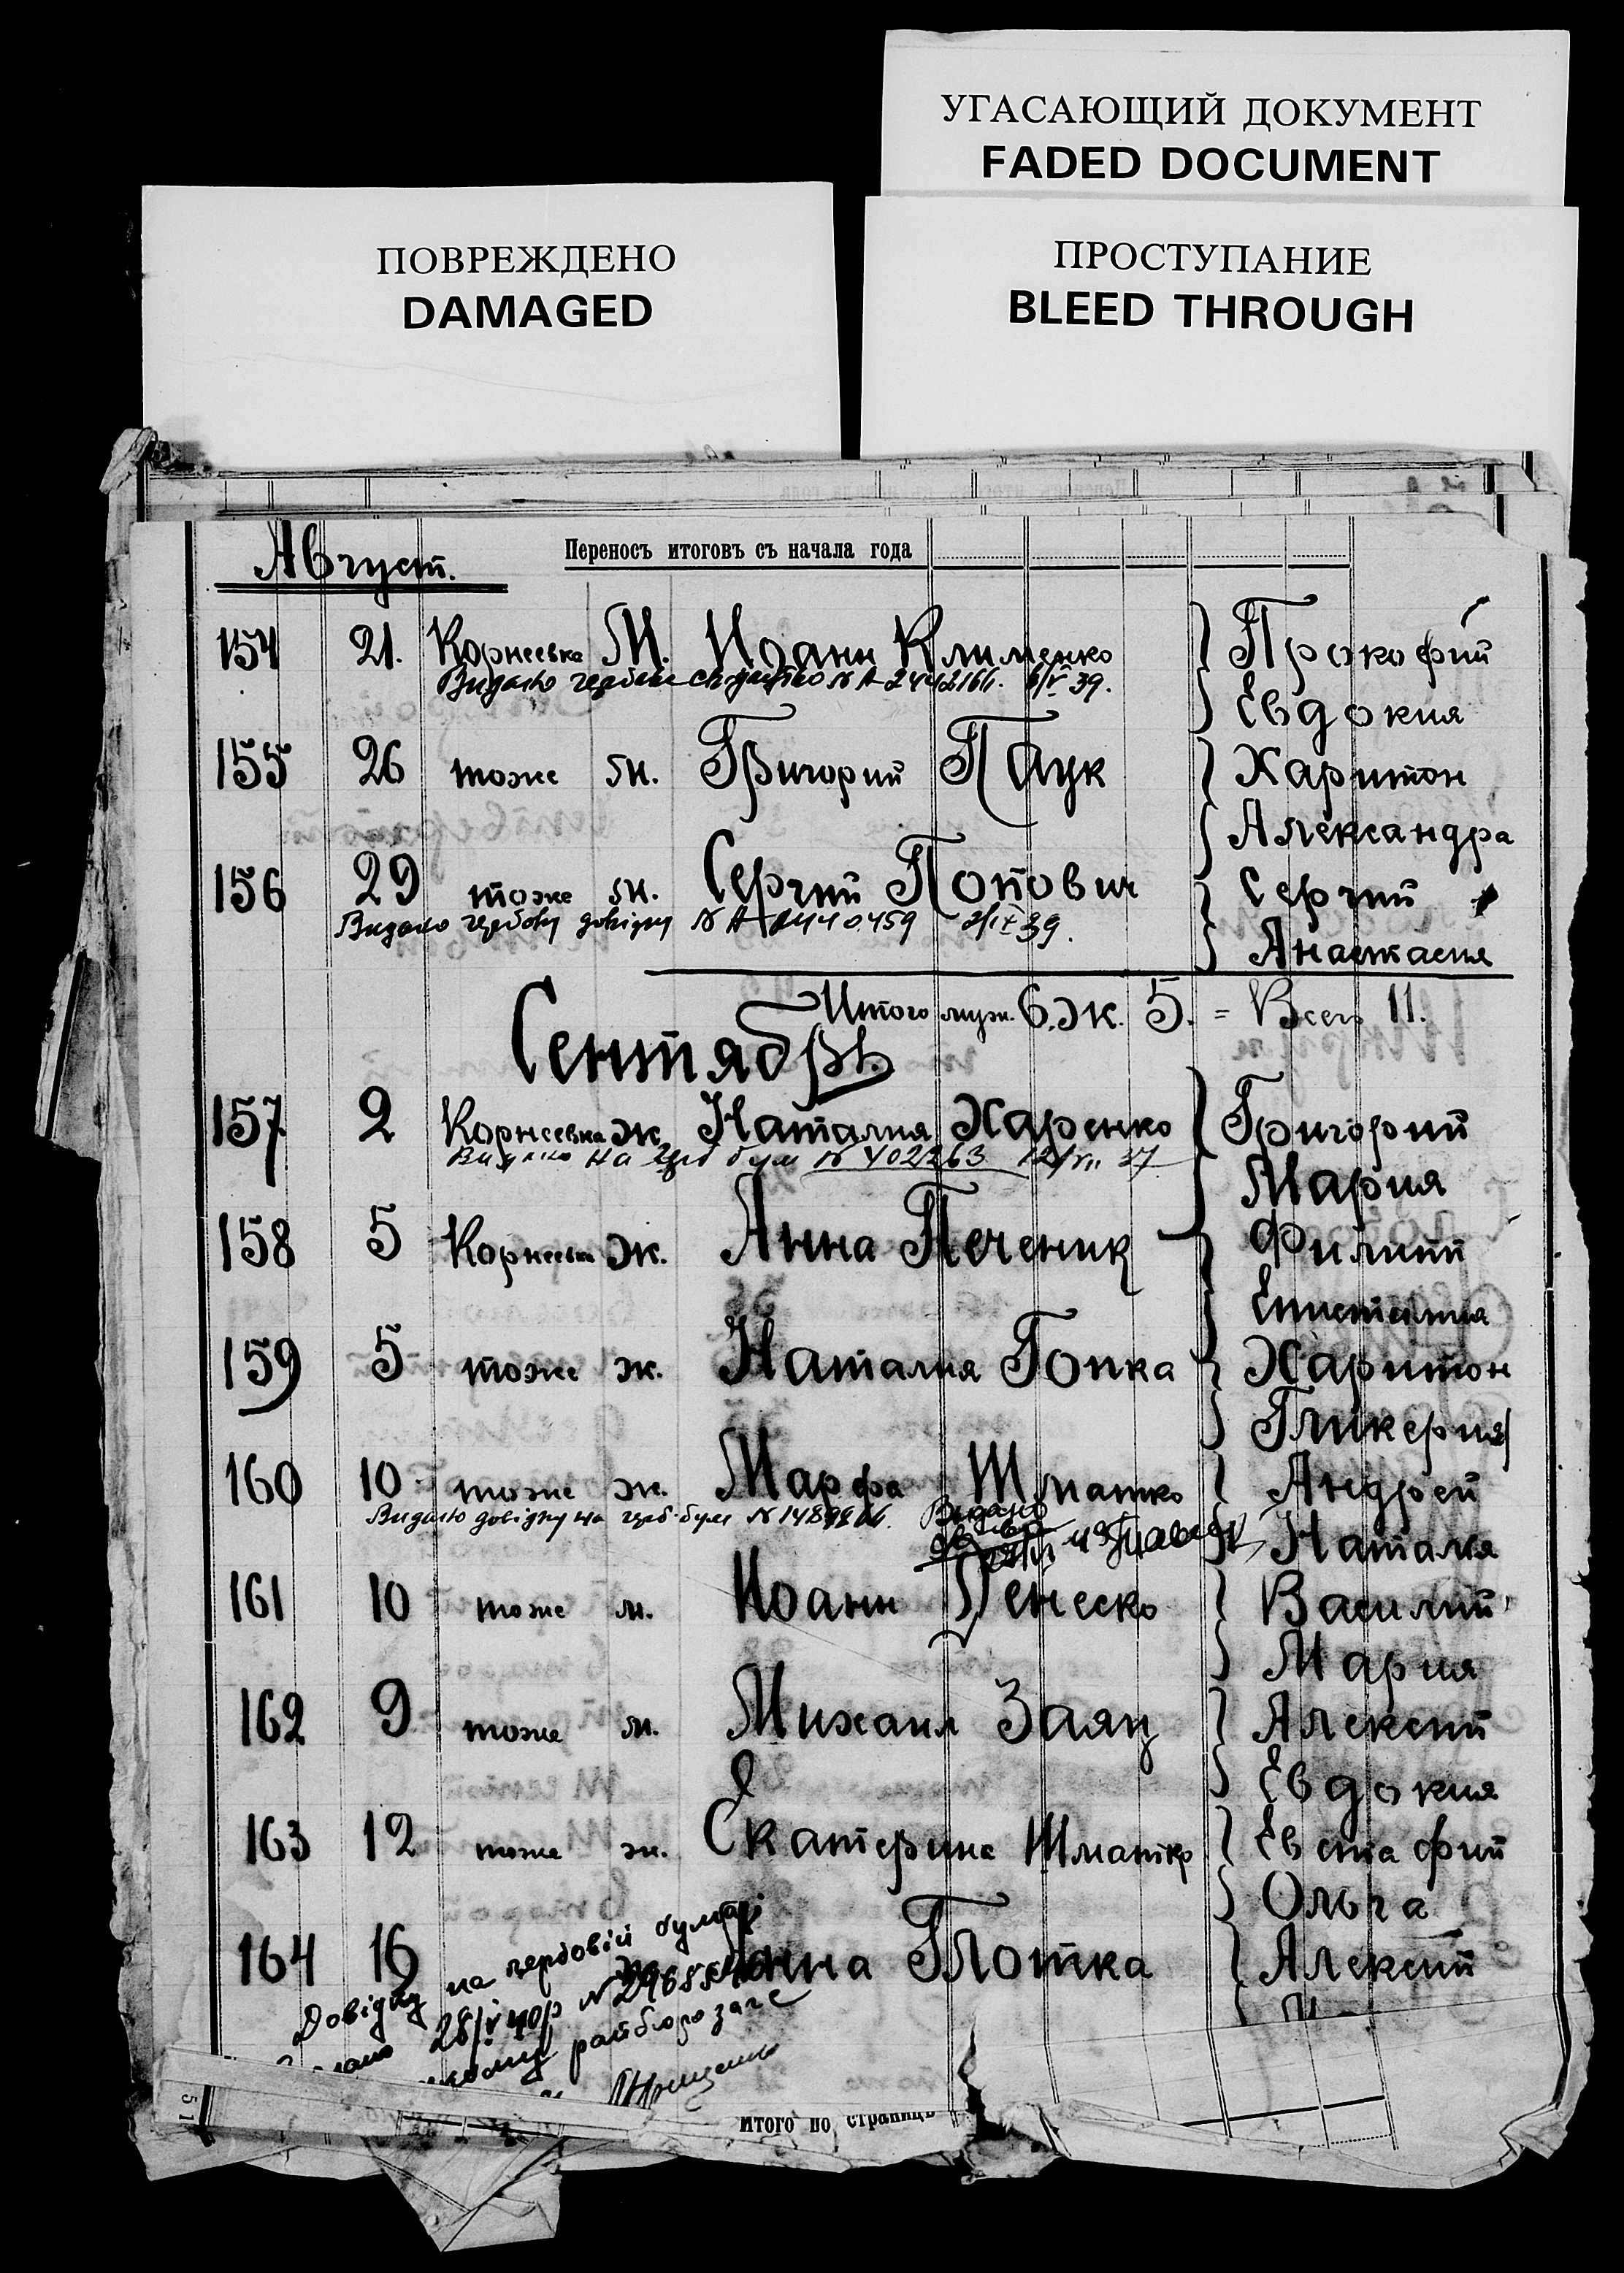 УГАСАЮЩИЙ ДОКУМЕНТ
FADED DOCUMENT
ПОВРЕЖДЕНО
DAMAGED
ПРОСТУПАНИЕ
BLEED THROUGH
Август.
Переносъ итоговъ съ начала года
154 21. Корнеевка М. Иоанн Клименко Прокофий
Видано № А 39.
Евдокия
155 26 тоже м. Григорий Паук Харитон
Александра
156 29 тоже м. Сергий Попович Сергий
Видано гербову довідку № А 39.
Анастасия
Итого муж. 6. ж. 5. = Всего 11.
Сентябрь.
157 2 Корнеевка ж. Наталия Харенко Григорий
Видано на герб бум № 402263 37
Мария
158 5 Корнеевка ж. Анна Печеник Филипп
Епистимия
159 5 тоже ж. Наталия Гопка Харитон
Гликерия
160 10 тоже ж. Марфа Шматко Андрей
Видано довідку на герб. бум № Видано
Наталия
161 10 тоже м. Иоанн Василий
Мария
162 9 тоже м. Михаил Заяц Алексий
Евдокия
163 12 тоже ж. Екатерина Шматко Евстафий
Ольга
164 16 Анна Глотка Алексий
Довідку на гербовій бумазі
28/V 40р №
райбюро загс
51
Итого по страницѣ